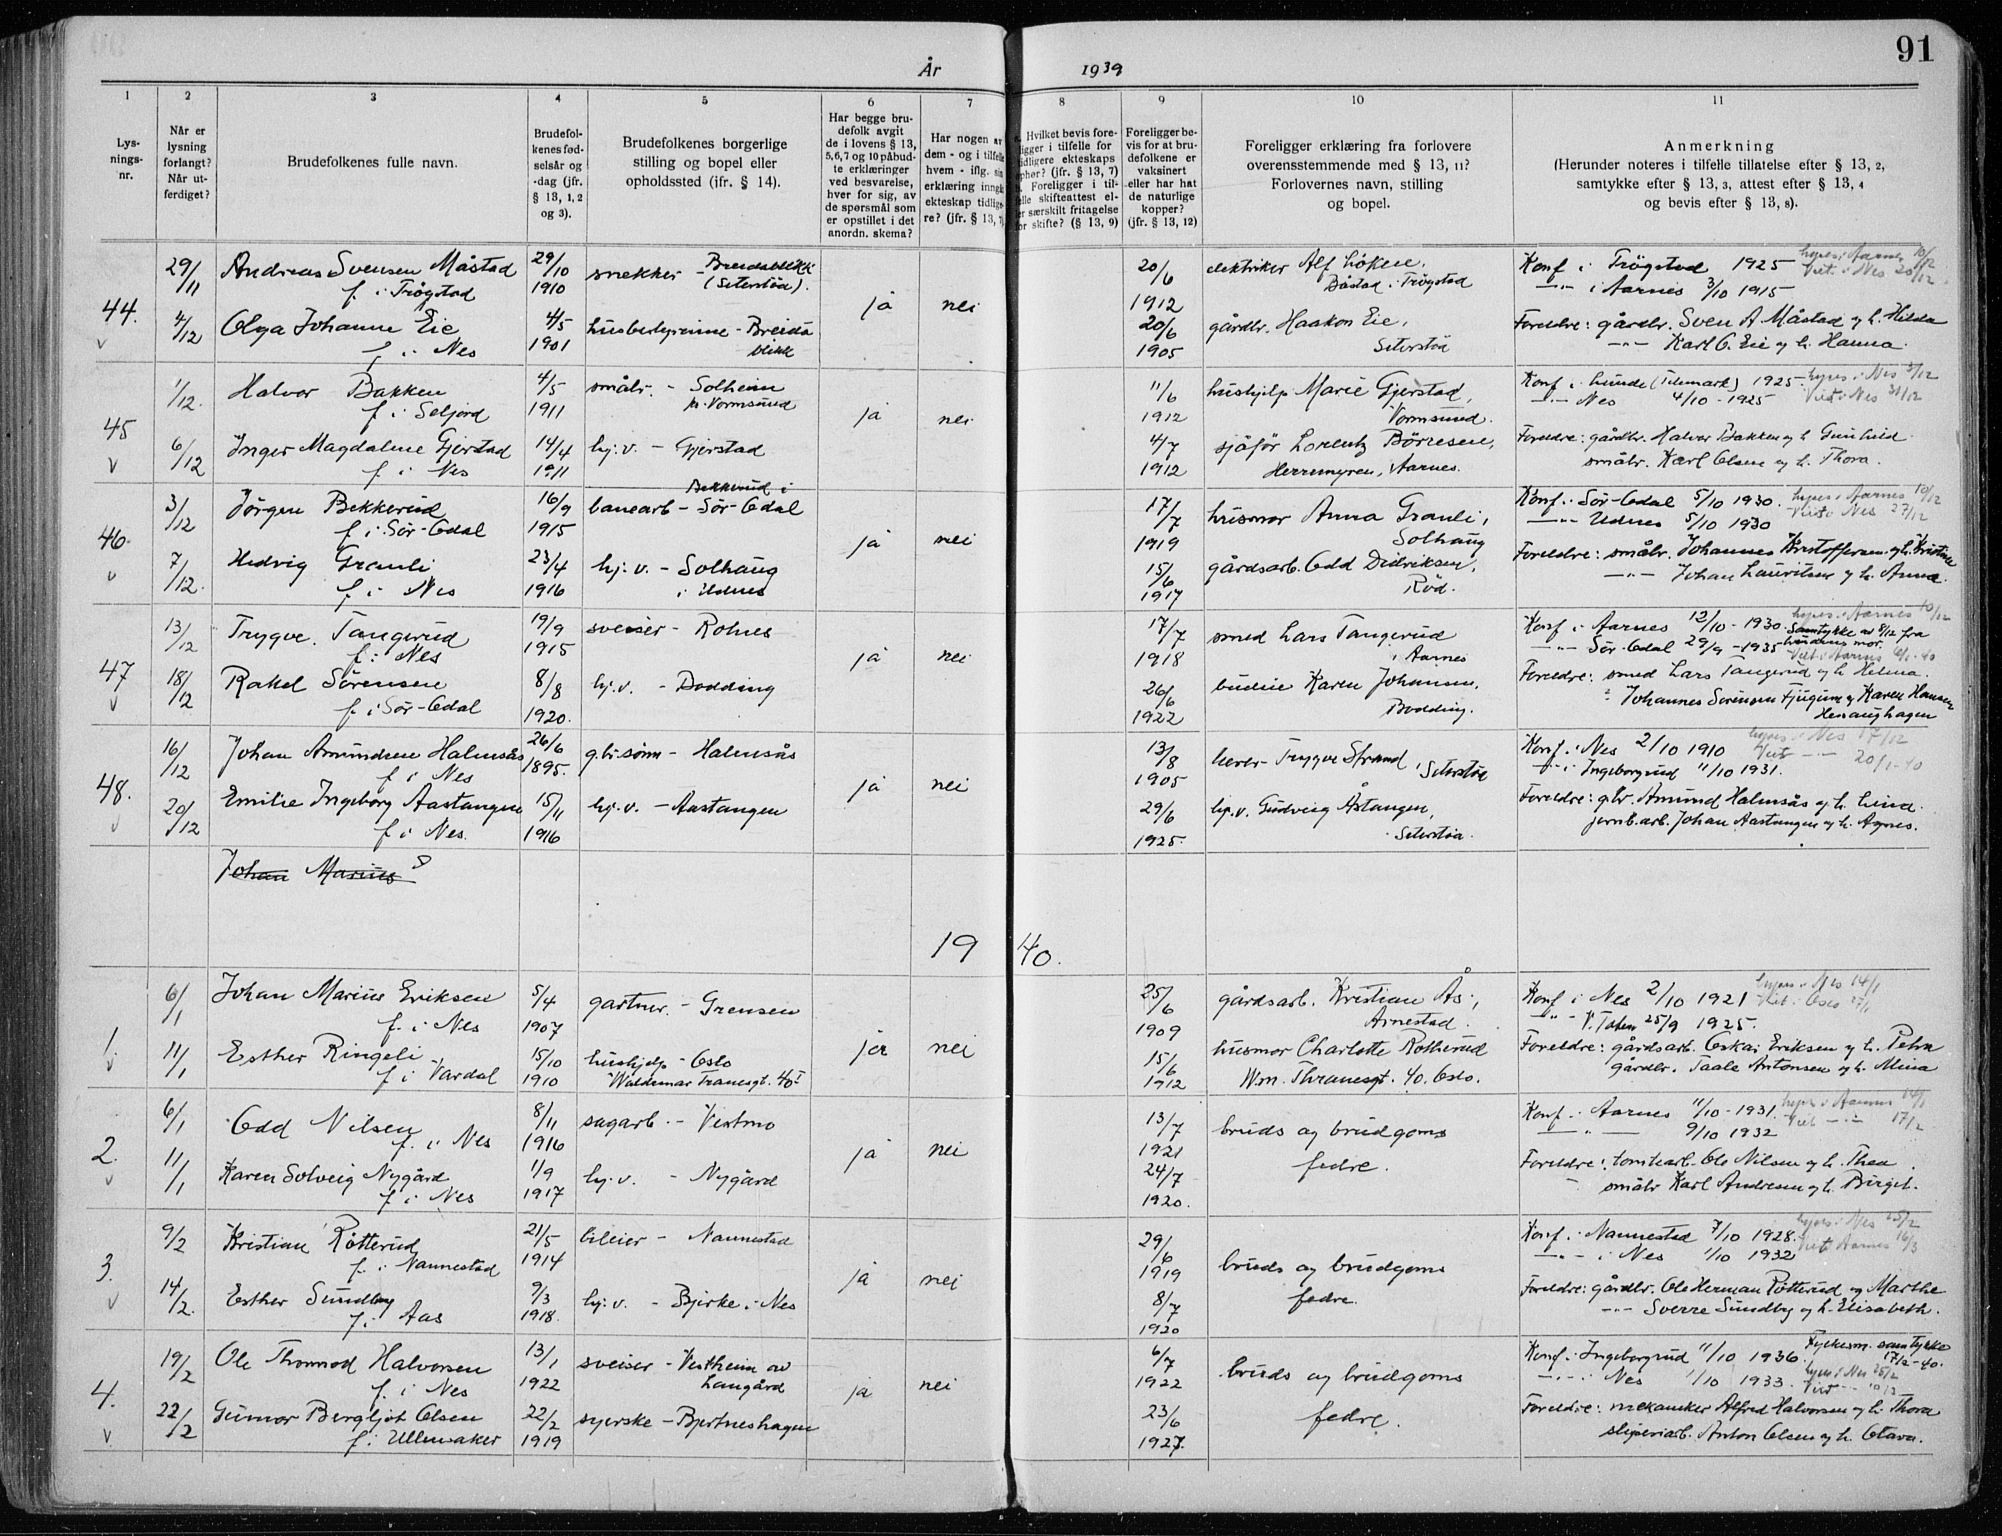 91
År 1939
1 2 3 4 5 6 7 8 9 10 11
Lysningsnr.
Når er lysning forlangt? Når utferdiget?
Brudefolkenes fulle navn.
Brudefolkenes fødselsår og -dag (jfr. § 13, 1, 2 og 3).
Brudefolkenes borgerlige stilling og bopel eller opholdssted (ifr. § 14).
Har begge brudefolk avgit de i lovens § 13, 5, 6, 7 og 10 påbudte erklæringer ved besvarelse, hver for sig, av de spørsmål som er opstillet i det anordn. skema?
Har nogen av dem - og i tilfelle hvem - iflg. sin erklæring inngått ekteskap tidligere? (jfr. § 13, 7)
Hvilket bevis foreligger i tilfelle for tidligere ekteskaps ophør? (jfr. § 13, 7) Foreligger i tilfelle skifteattest eller særskilt fritagelse for skifte? (§ 13, 9)
Foreligger bevis for at brudefolkene er vaksinert eller har hat de naturlige kopper? (jfr. § 13, 12)
Foreligger erklæring fra forlovere overensstemmende med § 13, 11? Forlovernes navn, stilling og bopel.
Anmerkning (Herunder noteres i tilfelle tillatelse efter § 13, 2, samtykke efter § 13, 3, attest efter § 13, 4 og bevis efter § 13, 8).
44. 29/11 Andreas Svensen Måstad 29/10 snekker - Breidablikk 20/6 elektriker Alf Løken, Konf. i Trøgstad 1925 lyses i Aarnes 10/12
f. i Trøgstad 1910 (Seterstøa). ja nei 1912 Båstad i Trøgstad -"- i Aarnes 3/10 1915 Viet i Nes 20/12
4/12 Olga Johanne Eie 4/5 husbestyrerinne - Breida 20/6 gårdbr. Haakon Eie, Foreldre: gårdbr. Sven A. Måstad og h. Hilda
f. i Nes 1901 blikk 1905 Seterstøa -"- Karl O. Eie og h. Hanna.
45 1/12 Halvor Bakken 4/5 småbr. - Solheim 11/6 hushjelp Marie Gjerstad, Konf. i Lunde (Telemark) 1925. lyses i Nes
f. i Seljord 1911 pr. Vormsund ja nei 1912 Vormsund. -"- Nes 4/10 - 1925 Viet i Nes 31/12
6/12 Inger Magdalene Gjerstad 14/4 hj.v. - Gjerstad 4/7 sjåfør Lorentz Børresen, Foreldre: gårdbr. Halvor Bakken og h. Gunhild.
f. i Nes 1911 1912 Herremyren, Aarnes. småbr. Karl Olsen og h. Thora.
46. 3/12 Jørgen Bekkerud 16/9 banearb - Bekkerud i Sør-Odal 17/7 husmor Anna Granli, Konf. i Sør-Odal 5/10 1930. lyses i Aarnes 10/12
f. i Sør-Odal 1915 ja nei 1919 Solhaug -"- Udnes 5/10 1930 Viet i Nes 27/12
7/12. Hedvig Granli 23/4 hj.v. - Solhaug 15/6 gårdsarb. Odd Didriksen, Foreldre: småbr. Johannes Kristoffersen og h. Kristine
f. i Nes 1916 i Udnes 1917 Rød. -"- Johan Lauritsen og h. Anna.
47 13/12 Trygve Tangerud 19/9 sveiser - Rolnes 17/7 smed Lars Tangerud Konf. i Aarnes 12/10 - 1930. lyses i Aarnes 10/12
f. i Nes 1915 ja nei 1918 i Aarnes -"- Sør-Odal 29/9 - 1935 Samtykke av 8/12 fra brudens mor.
18/12 Rakel Sørensen 8/8 hj.v. - Dodding 26/6 budeie Karen Johansen, Foreldre: smed Lars Tangerud og h. Helma.
f. i Sør-Odal 1920. 1922 Dodding. Johannes Sørensen Fjugum og Karen Hansen
Henaughagen
48. 16/12 Johan Amundsen Halmsås 26/6 gbr.sønn - Halmsås 13/8 lærer Trygve Strand, Seterstøa Konf. i Nes 2/10 1910 lyses i Nes 17/12
f. i Nes 1895. ja nei 1905 -"- i Ingeborgrud 11/10 1931. Viet -"- 20/1-40
20/12 Emilie Ingeborg Aastangen 15/11 hj.v. - Aastangen 29/6 hj.v. Gudveig Åstangen, Foreldre: gbr. Amund Halmsås og h. Lina.
f. i Nes. 1916 1925. Seterstøa jernb.arb. Johan Aastangen og h. Agnes.
Johan Marius
19 40.
1. 6/1 Johan Marius Eriksen 5/4 gartner - Grensen 25/6 gårdsarb. Kristian Ås, Konf i Nes 2/10 1921 lyses i Nes 14/1
f. i Nes 1907 ja nei 1909 Arnestad. -"- V. Toten 25/9 1925. Viet i Oslo
11/1 Esther Ringeli 15/10 hushjelp - Oslo 15/6 husmor Charlotte Rotherud Foreldre: gårdsarb. Oskar Eriksen og h. Petra
f. i Vardal 1910 Waldemar Tranesgt. 40 I 1912 W.m. Thranesgt. 40. Oslo. gårdbr. Taale Antonsen og h. Mina
2. 6/1 Odd Nilsen 8/11 sagarb. - Vestmo 13/7 bruds og brudgoms Konf. i Aarnes 11/10 - 1931. lyses i Aarnes
f. i Nes 1916 ja nei 1921 fedre. -"- 9/10 1932 Viet -"- 17/2
11/1 Karen Solveig Nygård 1/9 hj.v. - Nygård 24/7 Foreldre: tomtearb. Ole Nilsen og h. Thea.
f. i Nes 1917 1920. småbr Karl Andresen og h. Birgit.
3. 9/2 Kristian Røtterud 21/5 bileier - Nannestad 29/6 bruds og brudgoms Konf. i Nannestad 7/10 1928. lyses i Nes 25/2
f. i Nannestad 1914 ja nei 1919 fedre. -"- i Nes 1/10 1932 Viet Aarnes 16/3
14/2. Esther Sundby 9/3 hj.v. - Bjerke i Nes 8/7 Foreldre: gårdbr. Ole Herman Røtterud og Marthe
f. i Aas 1918. 1920 -"- Sverre Sundby og h. Elisabeth.
4. 19/2 Ole Thormod Halvorsen 13/1 sveiser - Vestheim av 6/7 bruds og brudgoms Konf. i Ingeborgrud 11/10 1936. Fylkesm. samtykke 17/2-40.
f. i Nes 1922 Haugård ja nei 1922 fedre. -"- i Nes 1/10 1933. lyses i Nes 25/2
22/2 Gunvor Bergljot Olsen 22/2 syerske - Bjertneshagen 23/6 Foreldre: mekaniker Alfred Halvorsen og h. Thora
f. i Ullensaker 1919 1927. sliperiarb. Anton Olsen og h. Olava.